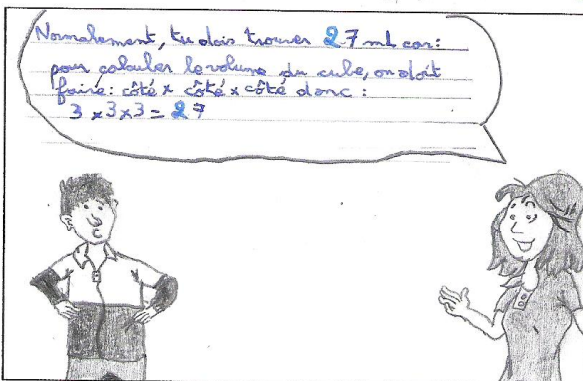 Normalement, tu dois trouver 27 ml car:
pour calculer le volume du cube, on doit
faire: côté x côté x côté donc :
3 x 3 x 3 = 27